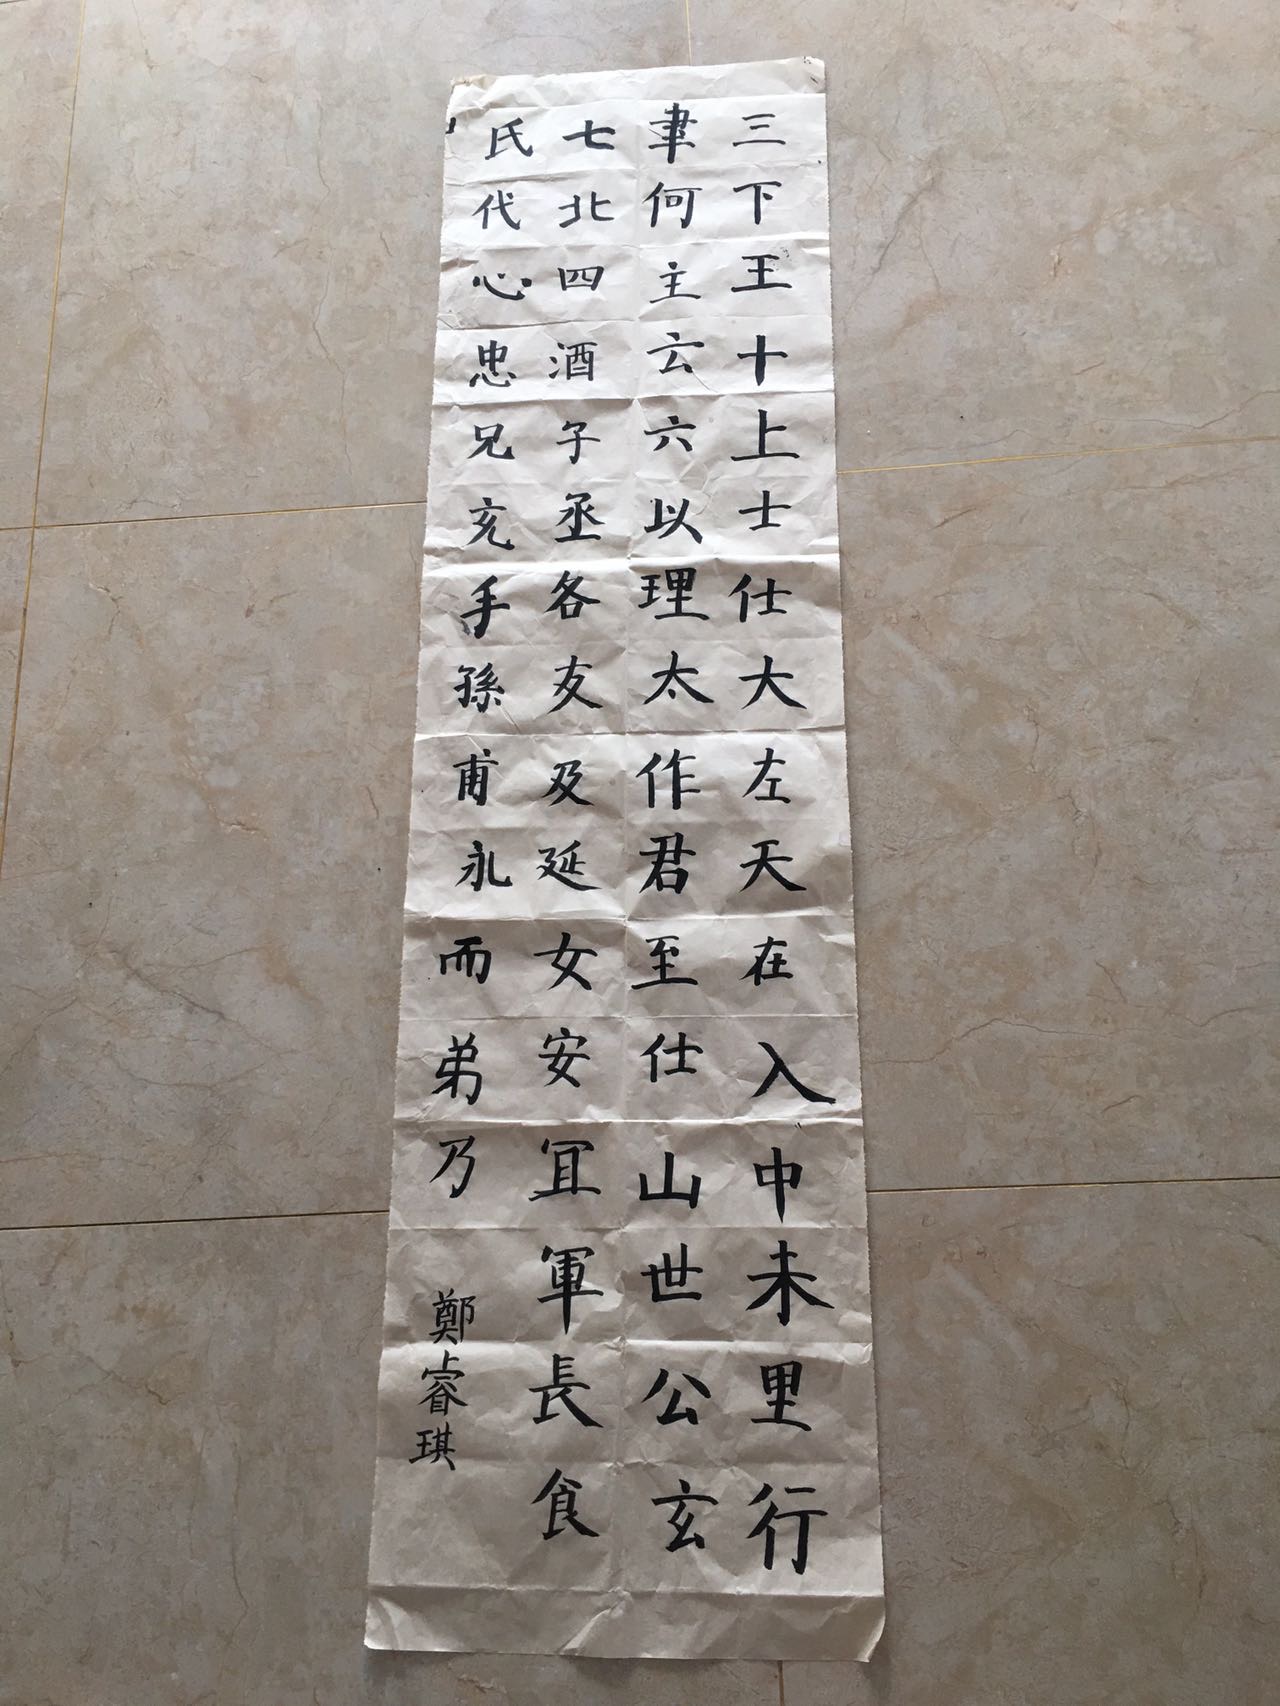 三下王十上士仕大左天在入中未里行
聿何主云六以理太作君至仕山世公玄
七北四酒子丞各友及延女安冝軍長食
氏代心忠兄充手孫甫永而弟乃
鄭睿琪